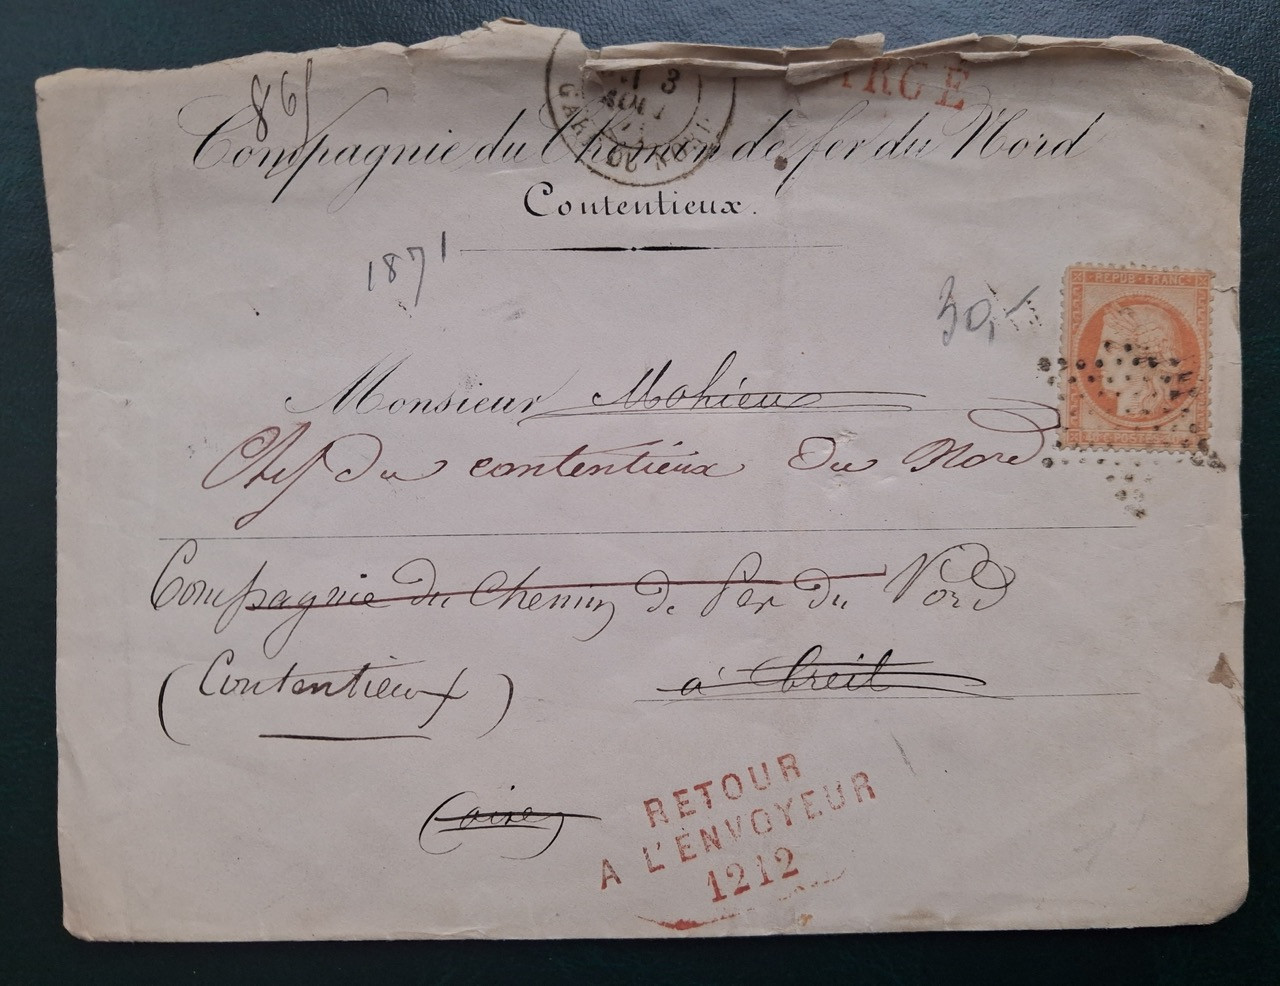 861
3
AOUT
71
GARE DU NORD
RGÉ
Compagnie du Chemin de fer du Nord
Contentieux.
1871
30,-
REPUB · FRANC
40 C POSTES 40 C
Monsieur Mahieu
Chef du contentieux du Nord
Compagnie du Chemin de Fer du Nord
(Contentieux)
à Creil
(Oise)
RETOUR
A L'ENVOYEUR
1212